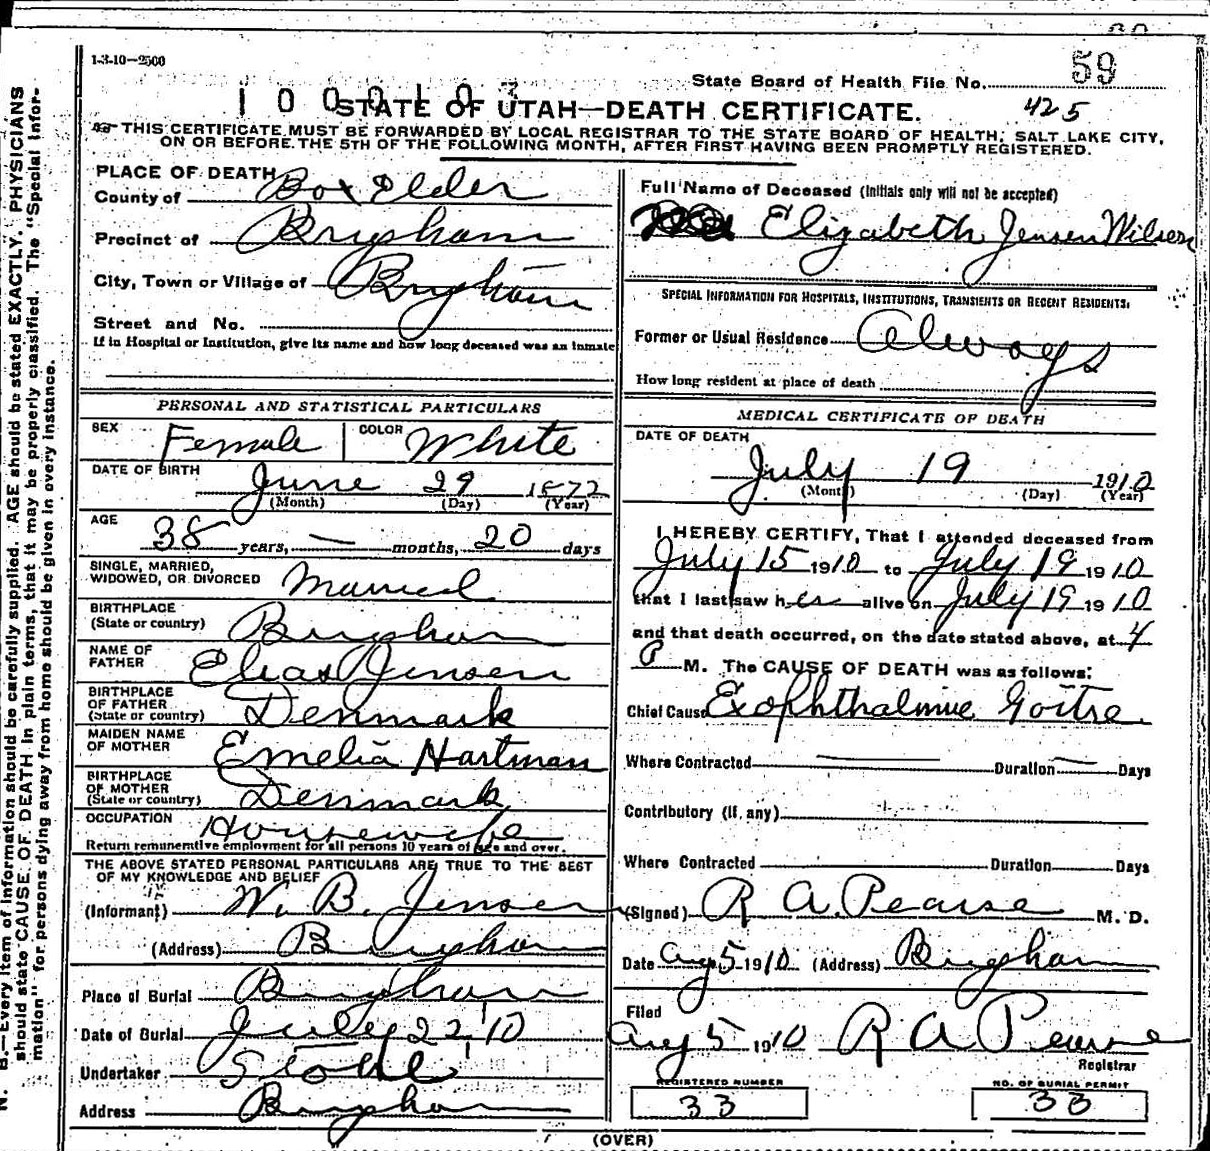 1-3-10—2500
59
State Board of Health File No.
STATE OF UTAH—DEATH CERTIFICATE.
425
THIS CERTIFICATE MUST BE FORWARDED BY LOCAL REGISTRAR TO THE STATE BOARD OF HEALTH, SALT LAKE CITY,
ON OR BEFORE THE 5TH OF THE FOLLOWING MONTH, AFTER FIRST HAVING BEEN PROMPTLY REGISTERED.
N. B.—Every item of information should be carefully supplied. AGE should be stated EXACTLY. PHYSICIANS
should state CAUSE OF DEATH in plain terms, that it may be properly classified. The "Special Infor-
mation" for persons dying away from home should be given in every instance.
PLACE OF DEATH
County of Box Elder
Precinct of Brigham
City, Town or Village of Brigham
Street and No.
If in Hospital or Institution, give its name and how long deceased was an inmate
PERSONAL AND STATISTICAL PARTICULARS
SEX Female COLOR White
DATE OF BIRTH
June 29 1872
(Month) (Day) (Year)
AGE
38 years, — months, 20 days
SINGLE, MARRIED,
WIDOWED, OR DIVORCED Married
BIRTHPLACE
(State or country) Brigham
NAME OF
FATHER Elias Jensen
BIRTHPLACE
OF FATHER
(State or country) Denmark
MAIDEN NAME
OF MOTHER Emelia Hartman
BIRTHPLACE
OF MOTHER
(State or country) Denmark
OCCUPATION Housewife
Return remunerative employment for all persons 10 years of age and over.
THE ABOVE STATED PERSONAL PARTICULARS ARE TRUE TO THE BEST
OF MY KNOWLEDGE AND BELIEF
(Informant) W. B. Jensen
(Address) Brigham
Place of Burial Brigham
Date of Burial July 22 '10
Undertaker
Address Brigham
Full Name of Deceased (Initials only will not be accepted)
Elizabeth Jensen Wilson
SPECIAL INFORMATION FOR HOSPITALS, INSTITUTIONS, TRANSIENTS OR RECENT RESIDENTS.
Former or Usual Residence Always
How long resident at place of death
MEDICAL CERTIFICATE OF DEATH
DATE OF DEATH
July 19 1910
(Month) (Day) (Year)
I HEREBY CERTIFY, That I attended deceased from
July 15 1910 to July 19 1910
that I last saw her alive on July 19 1910
and that death occurred, on the date stated above, at 4
P M. The CAUSE OF DEATH was as follows:
Chief Cause Exophthalmic Goitre
Where Contracted — Duration — Days
Contributory (if any)
Where Contracted Duration Days
(Signed) R A. Pearse M. D.
Date Aug 5 1910 (Address) Brigham
Filed
Aug 5 1910 R A Pearse
Registrar
REGISTERED NUMBER
33
NO. OF BURIAL PERMIT
33
(OVER)